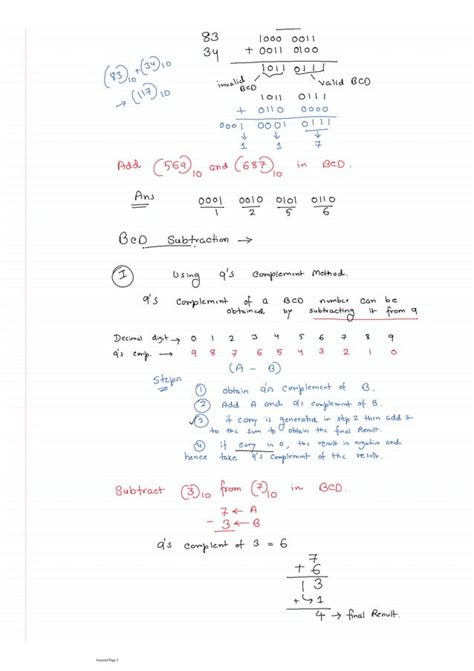 83 1000 0011
34 + 0011 0100
(83)10 + (34)10 1011 0111
→ (117)10 invalid BCD valid BCD
1011 0111
+ 0110 0000
0001 0001 0111
↓ ↓ ↓
1 1 7
Add (569)10 and (687)10 in BCD.
Ans 0001 0010 0101 0110
1 2 5 6
BCD Subtraction →
I Using 9's complement Method.
9's complement of a BCD number can be
obtained by subtracting it from 9
Decimal digit → 0 1 2 3 4 5 6 7 8 9
9's comp. → 9 8 7 6 5 4 3 2 1 0
(A - B)
Steps
1 obtain 9's complement of B.
2 Add A and 9's complement of B.
3 if carry is generated in step 2 then add it
to the sum to obtain the final Result.
4 if carry is 0, the result is negative and
hence take 9's complement of the result.
Subtract (3)10 from (7)10 in BCD.
7 ← A
- 3 ← B
9's complent of 3 = 6
7
+ 6
1 3
+ ↳ 1
4 → final Result.
General Page 1